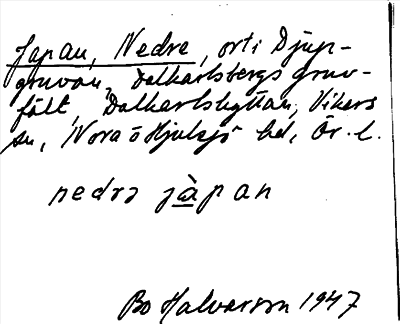 Japan, Nedre, ort i Djup-
gruvan, Dalkarlsbergs gruv-
fält, Dalkarlshyttan, Vikers
sn, Nora o Hjulsjö bd, Ör. l.
nedrɔ jàpan
Bo Halvarson 1947